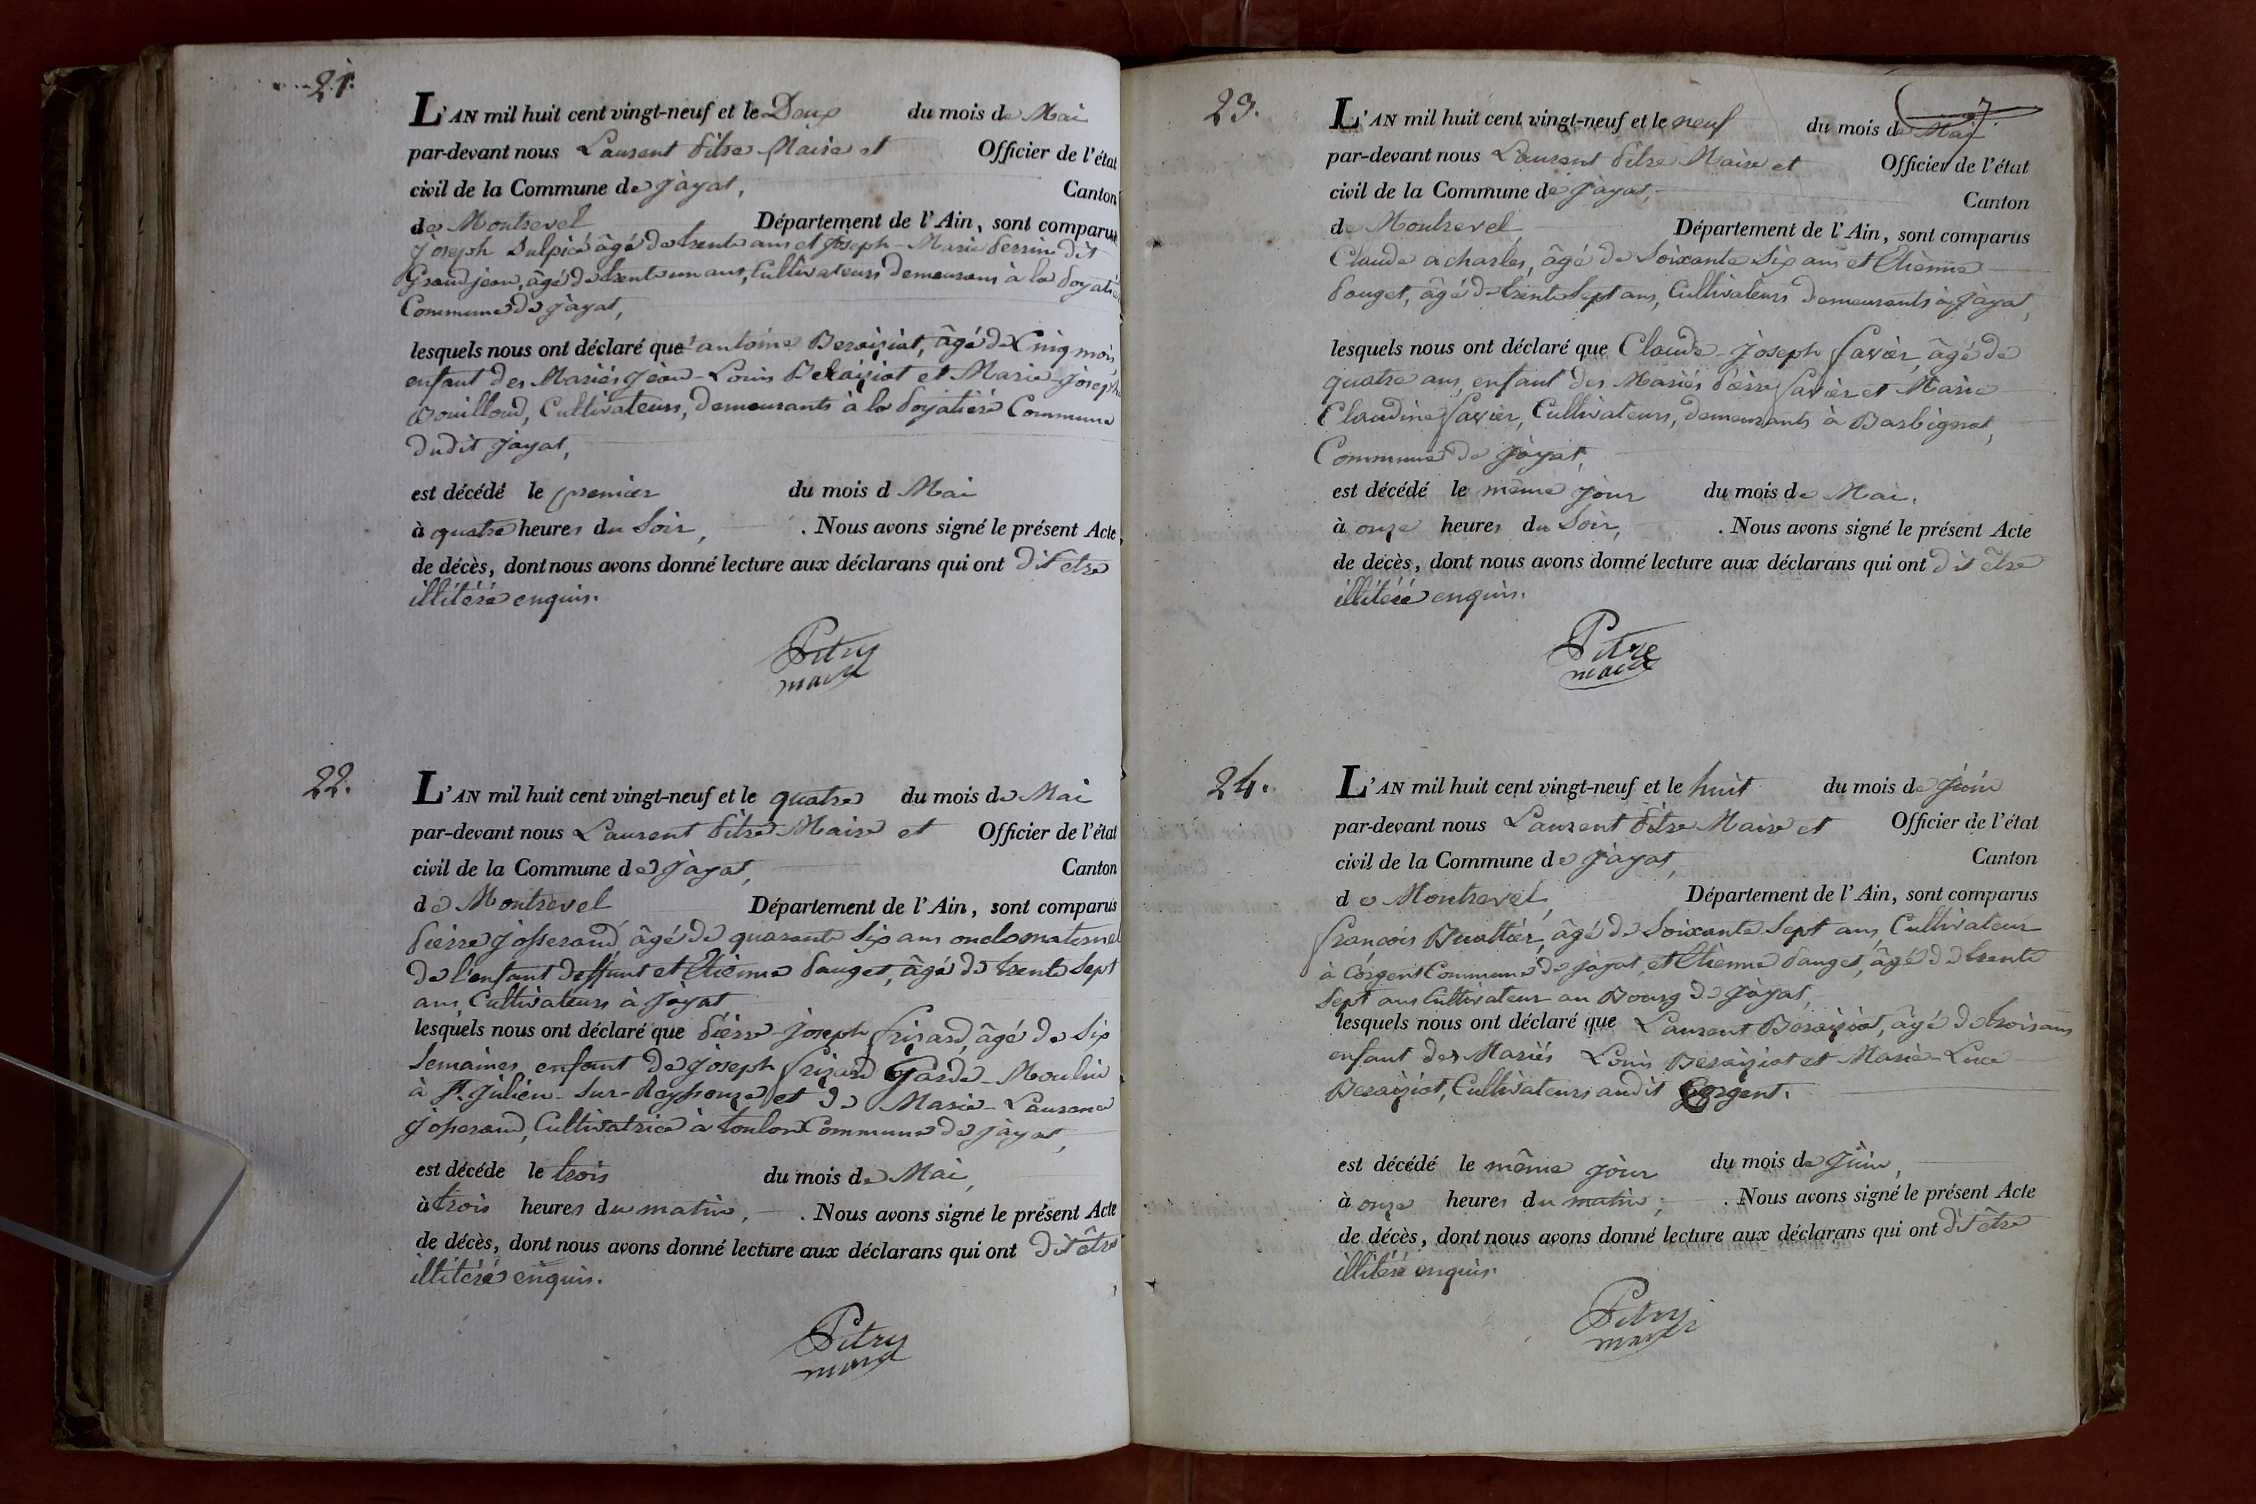 21.
L'AN mil huit cent vingt-neuf et le Deux du mois de Mai
par-devant nous Laurent Pitre Maire et Officier de l'état
civil de la Commune de Jayat, Canton
de Montrevel Département de l'Ain, sont comparus
Joseph Sulpice âgé de trente ans et Joseph-Marie Perrin dit
Grandjean, âgé de trente un ans, Cultivateurs demeurans à la
Commune de Jayat,
lesquels nous ont déclaré que antoine Beraiziat, âgé de Cinq mois
enfant des Mariés Jean-Louis Beraiziat et Marie-Joseph
Bouilloud, Cultivateurs, demeurants à la Commune
dudit Jayat,
est décédé le premier du mois d Mai
à quatre heures du Soir, . Nous avons signé le présent Acte
de décès, dont nous avons donné lecture aux déclarans qui ont dit être
illitéré enquis.
Pitre
maire
22.
L'AN mil huit cent vingt-neuf et le quatre du mois de Mai
par-devant nous Laurent Pitre Maire et Officier de l'état
civil de la Commune de Jayat, Canton
de Montrevel Département de l'Ain, sont comparus
Pierre Josserand âgé de quarante Six ans oncle maternel
de l'enfant deffunt et Etienne Pauget, âgé de trente Sept
ans Cultivateurs à Jayat
lesquels nous ont déclaré que Pierre-Joseph Frizard, âgé de Six
Semaines, enfant de Joseph Frizard Garde-Moulin
à St. Julien-Sur-Reyssouze et de Marie-Laurence
Josserand, Cultivatrice à toulon Commune de Jayat,
est décédé le trois du mois de Mai,
à trois heures du matin, . Nous avons signé le présent Acte
de décès, dont nous avons donné lecture aux déclarans qui ont dit être
illitérés enquis.
Pitre
maire
23.
L'AN mil huit cent vingt-neuf et le neuf du mois de Mai
par-devant nous Laurent Pitre Maire et Officier de l'état
civil de la Commune de Jayat, Canton
de Montrevel Département de l'Ain, sont comparus
Claude acharles, âgé de Soixante Six ans et Etienne
Pauget, âgé de trente Sept ans, Cultivateurs demeurants à Jayat,
lesquels nous ont déclaré que Claude-Joseph Favier, âgé de
quatre ans, enfant des Mariés Pierre Favier et Marie
Claudine Favier, Cultivateurs, demeurants à Barbignat,
Commune de Jayat,
est décédé le même jour du mois de Mai.
à onze heures du Soir, . Nous avons signé le présent Acte
de décès, dont nous avons donné lecture aux déclarans qui ont dit être
illitéré enquis.
Pitre
maire
24.
L'AN mil huit cent vingt-neuf et le huit du mois de Juin
par-devant nous Laurent Pitre Maire et Officier de l'état
civil de la Commune de Jayat, Canton
de Montrevel, Département de l'Ain, sont comparus
François Buattier, âgé de Soixante Sept ans, Cultivateur
à Corgent Commune de Jayat, et Etienne Pauget, âgé de trente
Sept ans Cultivateur au Bourg de Jayat,
lesquels nous ont déclaré que Laurent Beraiziat, âgé de trois ans
enfant des Mariés Louis Beraiziat et Marie-Luce
Beraiziat, Cultivateurs audit Corgent.
est décédé le même jour du mois de Juin,
à onze heures du matin, . Nous avons signé le présent Acte
de décès, dont nous avons donné lecture aux déclarans qui ont dit être
illitéré enquis.
Pitre
maire